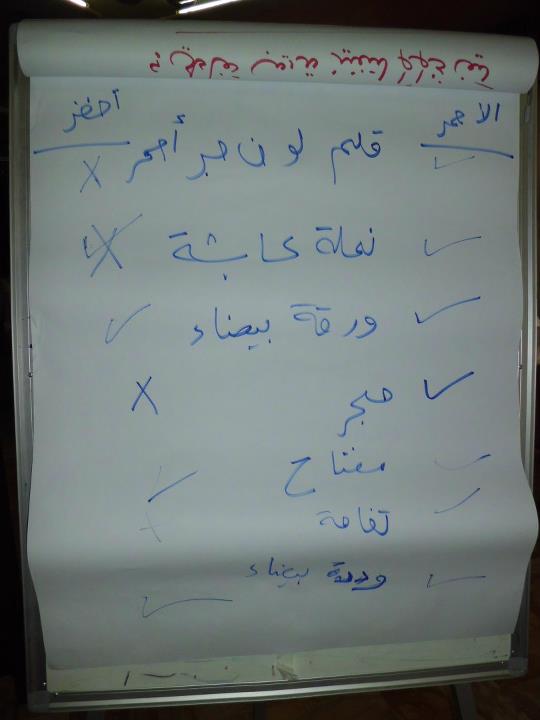 الاحمر احضر
قلم لون حبر أحمر X
نملة عاشة X
ورقة بيضاء
حجر X
مفتاح
تفاحة
وردة بيضاء